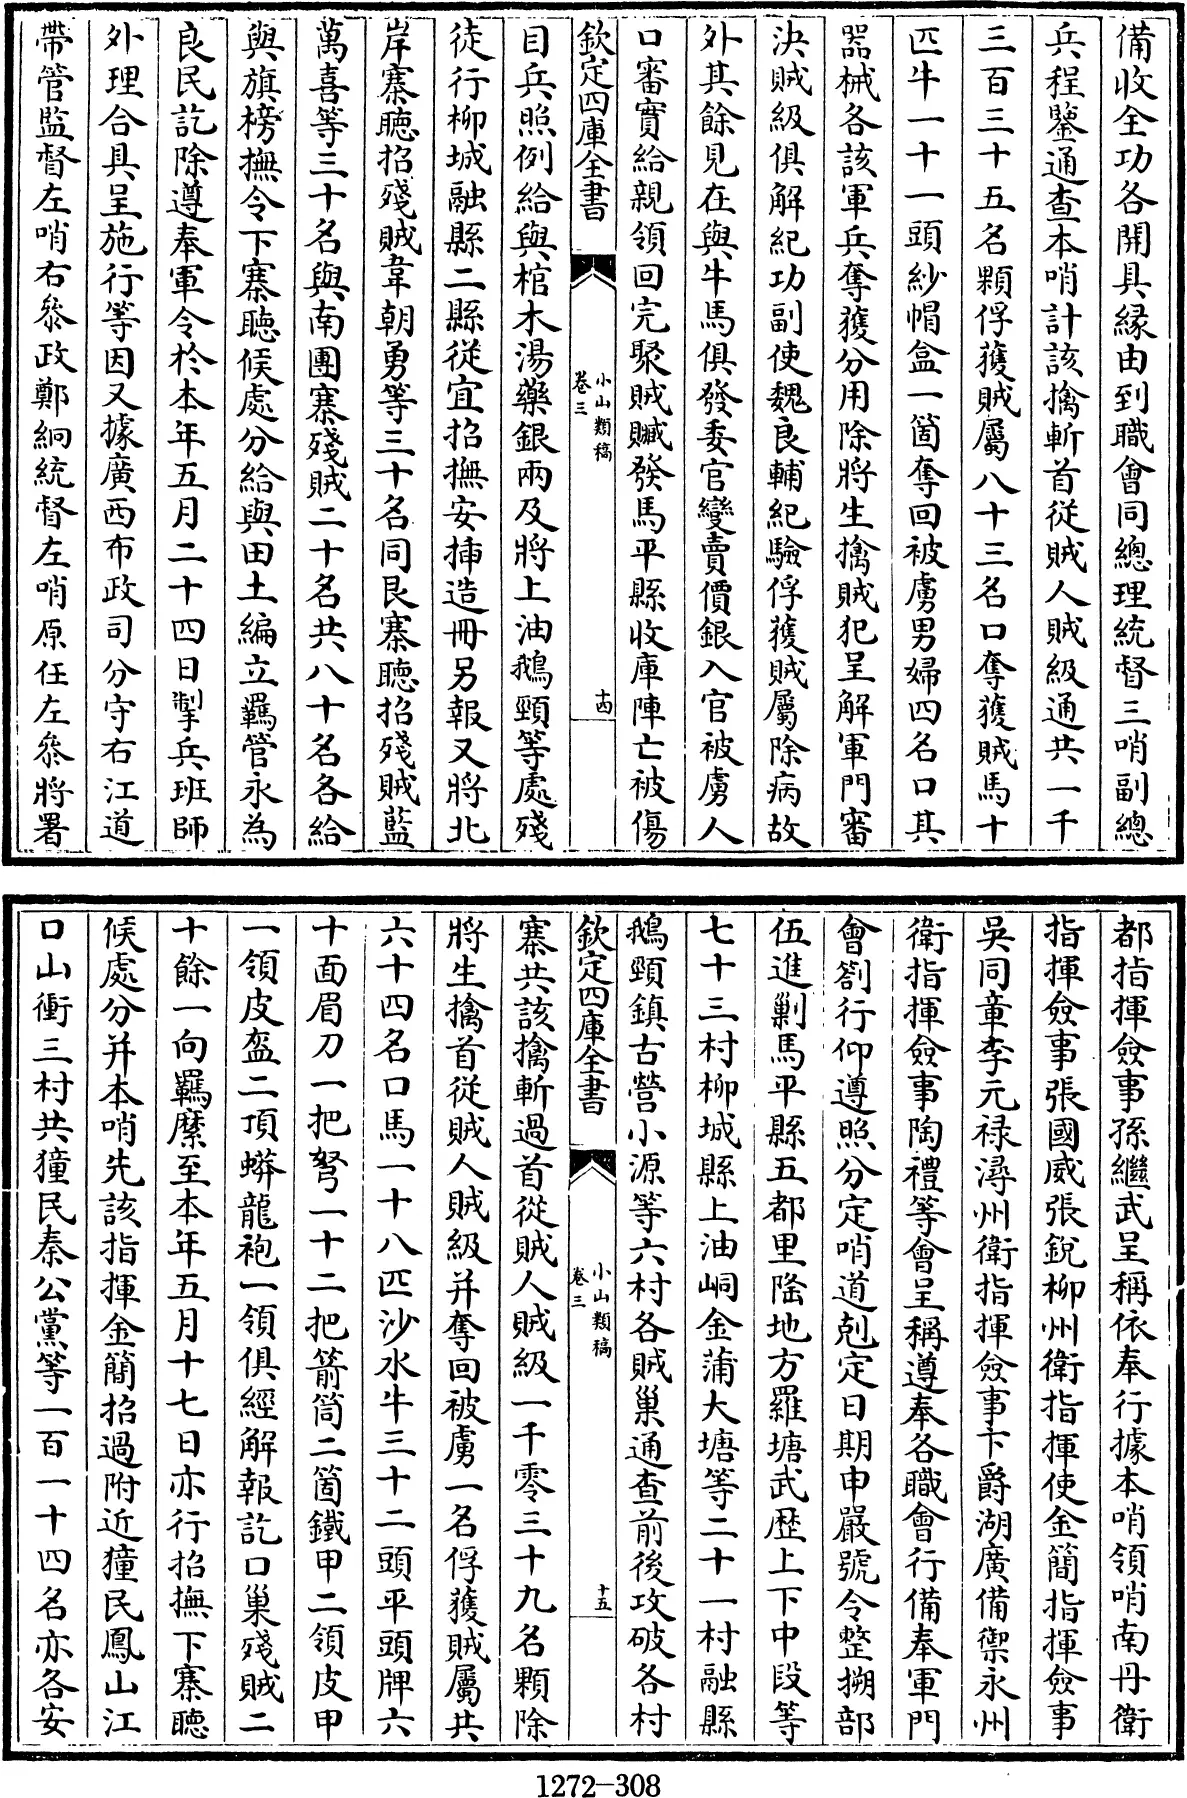 備收全功各開具縁由到職會同總理統督三哨副總
兵程鑒通查本哨計該擒斬首從賊人賊級通共一千
三百三十五名顆俘獲賊屬八十三名口奪獲賊馬十
匹牛一十一頭紗帽盒一箇奪回被虜男婦四名口其
器械各該軍兵奪獲分用除將生擒賊犯呈解軍門審
決賊級俱解紀功副使魏良輔紀驗俘獲賊屬除病故
外其餘見在與牛馬俱發委官變賣價銀入官被虜人
口審實給親領回完聚賊贓發馬平縣收庫陣亡被傷
欽定四庫全書
小山類稿
卷三
十四
目兵照例給與棺木湯藥銀兩及將上油鵝頸等處殘
徒行柳城融縣二縣從宜招撫安揷造冊另報又將北
岸寨聽招殘賊韋朝勇等三十名同艮寨聽招殘賊藍
萬喜等三十名與南團寨殘賊二十名共八十名各給
與旗榜撫令下寨聽候處分給與田土編立羈管永為
良民訖除遵奉軍令於本年五月二十四日掣兵班師
外理合具呈施行等因又據廣西布政司分守右江道
帶管監督左哨右叅政鄭絅統督左哨原任左叅將署
都指揮僉事孫繼武呈稱依奉行據本哨領哨南丹衛
指揮僉事張國威張銳柳州衛指揮使金簡指揮僉事
吳同章李元祿潯州衛指揮僉事卞爵湖廣備禦永州
衛指揮僉事陶禮等會呈稱遵奉各職會行備奉軍門
會劄行仰遵照分定哨道尅定日期申嚴號令整搠部
伍進剿馬平縣五都里隆地方羅塘武歴上下中段等
七十三村柳城縣上油峒金蒲大塘等二十一村融縣
鵝頸鎮古營小源等六村各賊巢通查前後攻破各村
欽定四庫全書
小山類稿
卷三
十五
寨共該擒斬過首從賊人賊級一千零三十九名顆除
將生擒首從賊人賊級并奪回被虜一名俘獲賊屬共
六十四名口馬一十八匹沙水牛三十二頭平頭牌六
十面眉刀一把弩一十二把箭筒二箇鐵甲二領皮甲
一領皮盔二頂蟒龍袍一領俱經解報訖口巢殘賊二
十餘一向羈縻至本年五月十七日亦行招撫下寨聽
候處分并本哨先該指揮金簡招過附近獞民鳳山江
口山衝三村共獞民秦公黨等一百一十四名亦各安
1272-308